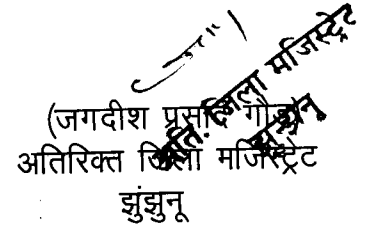 (जगदीश प्रसाद गौड़)
अतिरिक्त जिला मजिस्ट्रेट
झुंझुनू
अति. जिला मजिस्ट्रेट
झुन्झुनू